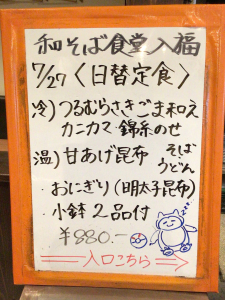 和そば食堂入福
7/27〈日替定食〉
冷)つるむらさきごま和え
カニカマ 錦糸のせ
温)甘あげ昆布 そば
うどん
・おにぎり(明太子昆布)
・小鉢 2品付
¥880.-
入口こちら